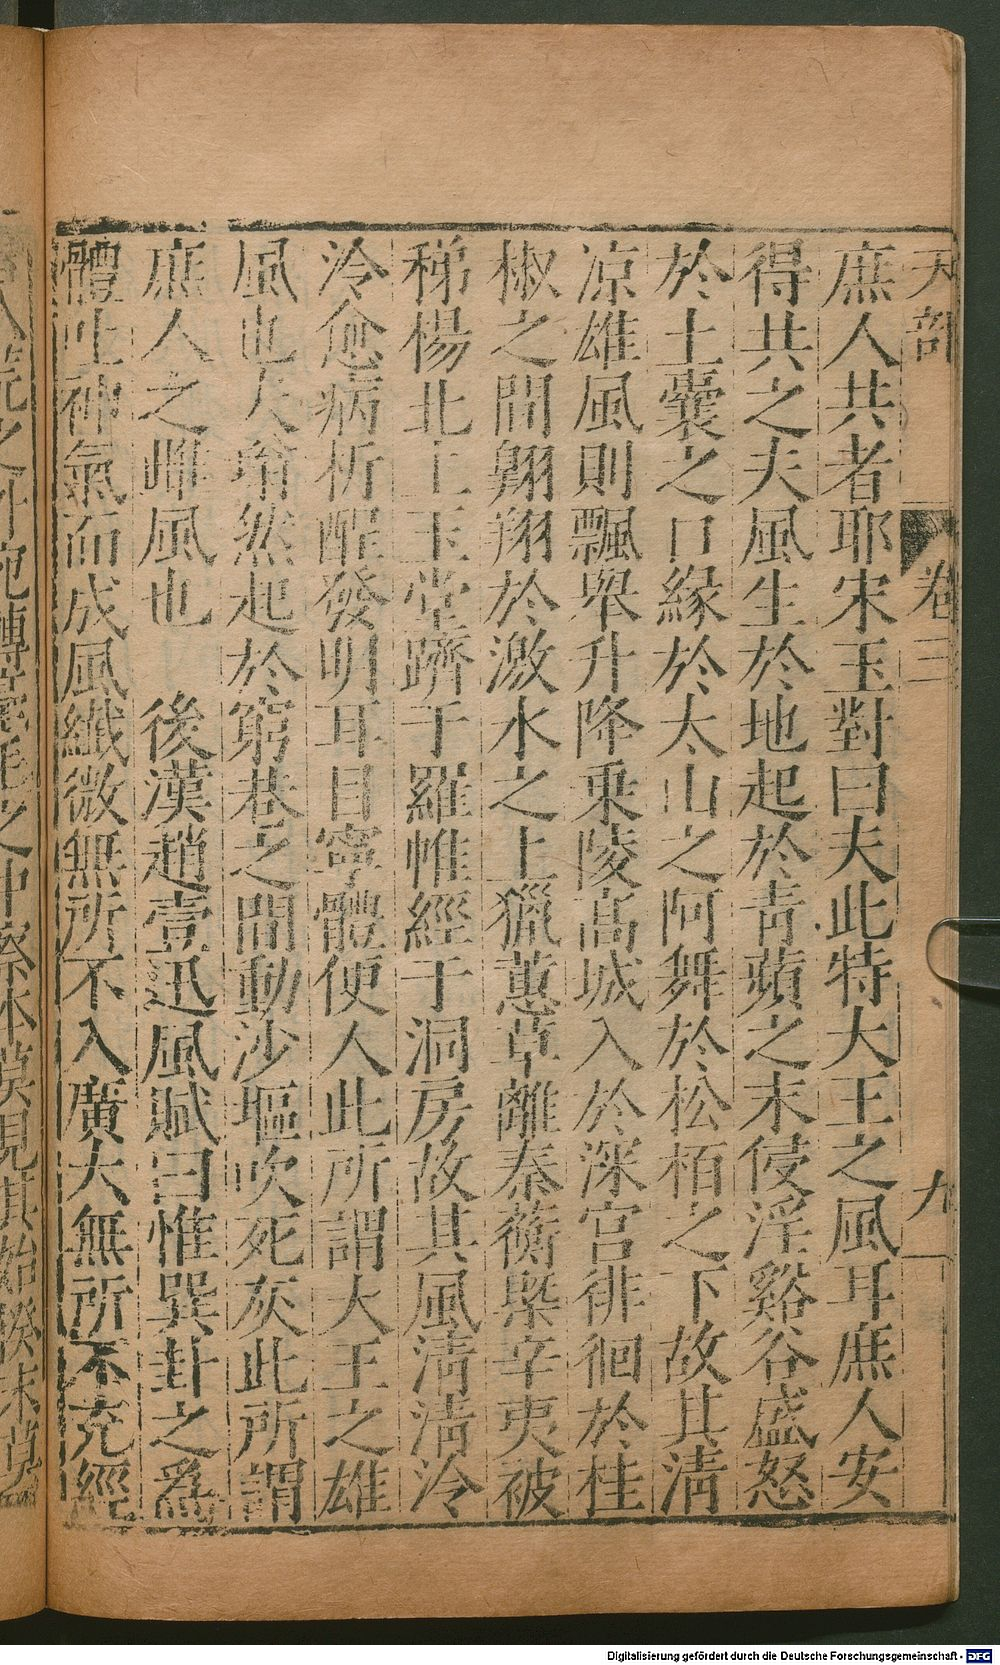 天部 卷三 九
庶人共者耶宋玉對曰夫此特大王之風耳庶人安
得共之夫風生於地起於青蘋之末侵淫谿谷盛怒
於土囊之口緣於太山之阿舞於松栢之下故其清
凉雄風則飄舉升降乗陵髙城入於深宫徘徊於桂
椒之間翺翔於激水之上獵蕙草離秦蘅槩辛夷被
稊楊北上玉堂躋于羅帷經于洞房故其風清清泠
泠愈病析酲發明耳目寧體便人此所謂大王之雄
風也夫塕然起於窮巷之間動沙堁吹死灰此所謂
庶人之雌風也 後漢趙壹迅風賦曰惟巽卦之爲
體吐神氣而成風纖微無所不入廣大無所不充經
八荒之外宛轉毫毛之中察本莫見其始揆末莫
Digitalisierung gefördert durch die Deutsche Forschungsgemeinschaft - DFG